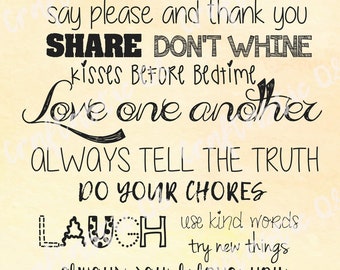 say please and thank you
SHARE DON'T WHINE
kisses Before Bedtime
Love one another
ALWAYS TELL THE TRUTH
DO YOUR CHORES
LAUGH use kind words
try new things